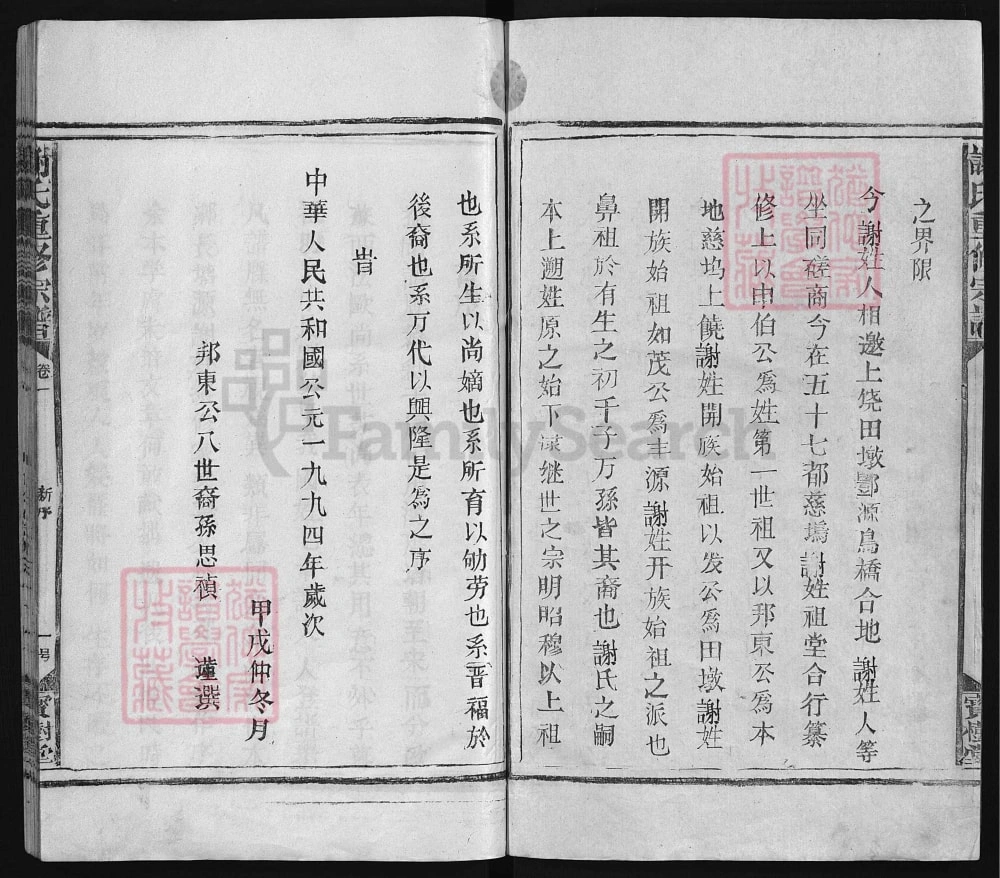 之界限
今謝姓人相邀上饶田墩鄷源鳥橋合地謝姓人等
坐同磋商今在五十七都慈塢謝姓祖堂合行纂
修上以申伯公爲姓第一世祖又以邦東公爲本
地慈坞上饒謝姓開族始祖以发公爲田墩謝姓
開族始祖如茂公爲丰源謝姓开族始祖之派也
鼻祖於有生之初千子万孫皆其裔也謝氏之嗣
本上溯姓原之始下隶继世之宗明昭穆以上祖
也系所生以尚嫡也系所育以劬劳也系晋福於
後裔也系万代以興隆是爲之序
旹
中華人民共和國公元一九九四年歲次
甲戌仲冬月
邦東公八世裔孫思禎 謹選
謝氏重修宗譜 卷一 新序 一号 寶樹堂
謝氏重修宗譜
寶樹堂
FamilySearch